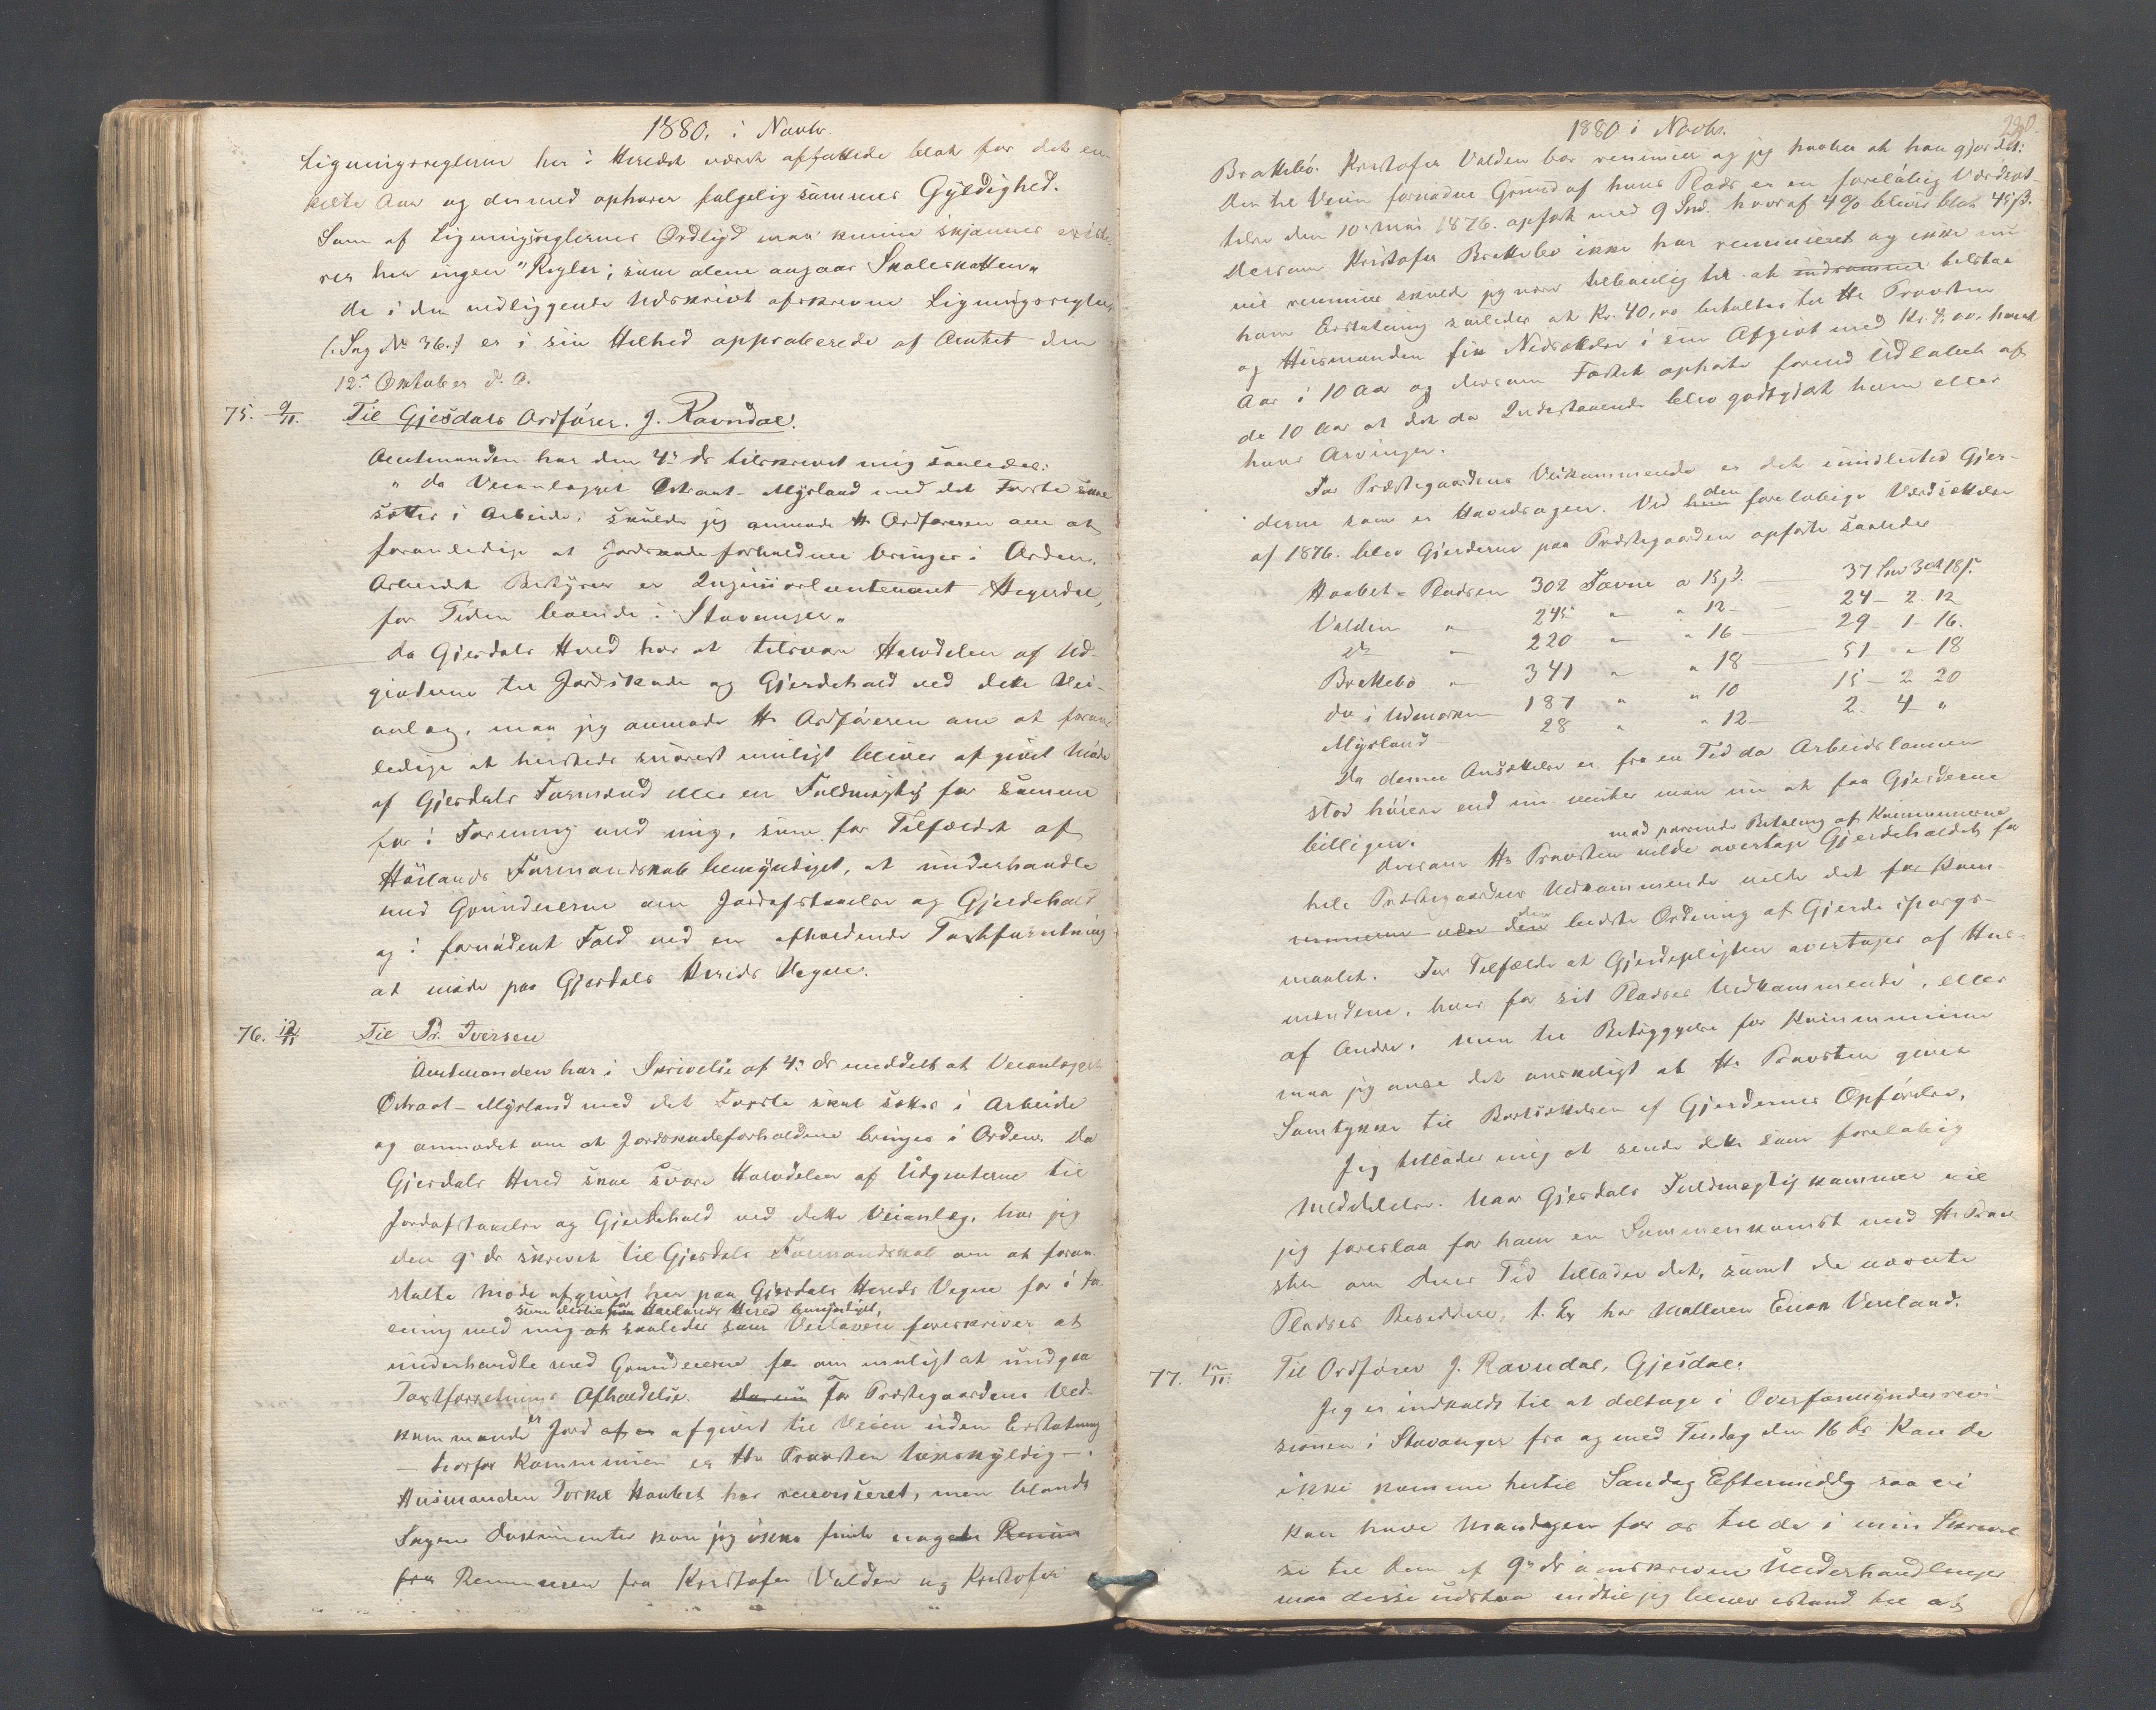 1880. i Novbr.
Ligningsreglerne her i Heredet været affattede blot for det en-
kelte Aar og dermed ophører følgelig sammes Gyldighed.
Som af Ligningsreglernes Ordlyd man kunne skjønnes existe
rer her ingen "Regler, som alene angaar Skoleskatten"
De i den vedliggende Udskrivt afskrevne Ligningsregler
(Sag No 36.) er i sin Helhed approberede af Amtet den
12te Oktober d. A.
75. 9/11. Til Gjesdals Ordfører. J. Ravndal.
Amtmanden har den 4de ds tilskrevet mig saaledes:
"da Veianlægget Østraat-Mysland med det Første skal
sættes i Arbeide, skulde jeg anmode Hr Ordføreren om at
foranledige at Jordskadeforholdene bringes i Orden.
Arbeidets Bestyrer er Ingeniørleutenant Hegerdal,
for Tiden boende i Stavanger"
Da Gjesdals Hered har at tilsvare Halvdelen af Ud-
givterne til Jordskade og Gjerdehold ved dette Vei-
anlæg, maa jeg anmode Hr Ordføreren om at foran
ledige at hersteds snarest muligt bliver afgivet Møde
af Gjesdals Formænd eller en Fuldmægtig for samme
for i Forening med mig, som for Tilfældet af
Høilands Formandskab bemyndiget, at underhandle
med Grundeierne om Jordafstaaelse og Gjerdehold
og i fornødent Fald ved en afholdende Taxtforretning
at møde paa Gjesdals Hereds Vegne.
76. 12/11 Til Pr. Iversen
Amtmanden har i Skrivelse af 4de ds meddelt at Veianlægget
Østraat-Mysland med det Første skal sættes i Arbeide
og anmodet om at Jordskadeforholdene bringes i Orden. Da
Gjesdals Hered skal svare Halvdelen af Udgivterne til
Jordafstaaelse og Gjerdehold ved dette Veianlæg, har jeg
den 9de ds skrevet til Gjesdals Formandskab om at foran-
stalte Møde afgivet her paa Gjesdals Hereds Vegne for i For
som dertil for Høilands Hered bemyndiget,
ening med mig at saaledes som Veiloven foreskriver at
underhandle med Grundeierne for om muligt at undgaa
Taxtforretnings Afholdelse. Da nu For Præstegaardens Ved-
kommende er Jord af er afgivet til Veien uden Erstatning
— derfor Kommunen er Hr Provsten takskyldig —.
Husmanden Torkel Haabet har renonseret, men blandt
Sagens Dokumenter kan jeg ikke finde nogen Renun
fra Renunsen fra Kristofer Valden og Kristofer
1880 i Novbr.
280.
Brattebø. Kristofer Valden bør renunsere og jeg haaber at han gjør det:
Den til Veien fornødne Grund af hans Plads er en foreløbig Værdsæt
telse den 10de Mai 1876. opført med 9 Spd. hvoraf 4% bliver blot 45ß.
Dersom Kristofer Brattebø ikke har renunseret og ikke nu
vil renunsere skulde jeg være tilbøielig til at indrømme tilstaa
ham Erstatning saaledes at Kr. 40,00 udbetaltes til Hr Provsten
og Husmanden fik Nedsættelse i sin Afgivt med Kr. 4,00. hvert
Aar i 10 Aar og dersom Fæstet ophørte forend Udløbet af
de 10 Aar at det da Indestaaende blev godtgjort ham eller
hans Arvinger.
For Præstegaardens Vedkommende er det imidlertid Gjer-
derne som er Hovedsagen. Ved hans den foreløbige Værdsættelse
af 1876. blev Gjerderne paa Præstegaarden opførte saaledes
Haabet-Pladsen 302 Favne a 15ß. — 37 Spd 3ort 18ß.
Valden " 245 " " 12 — 24 - 2. 12
ds " 220 " " 16 — 29 - 1 - 16.
Brattebø " 341 " " 18 — 51 - " - 18
do i Udmarken 187 " " 10 15 - 2 20
Mysland — 28 " " 12 — 2. 4 "
Da denne Ansættelse er fra en Tid da Arbeidslønnen
stod høiere end nu venter man nu at faa Gjerderne
billigere.
mod passende Betaling af Kommunerne
Dersom Hr Provsten vilde overtage Gjerdeholdet for
hele Præstegaardens Vedkommende vilde det for Kom-
munerne være den den bedste Ordning af Gjerdespørgs-
maalet. For Tilfælde at Gjerdepligten overtages af Hus-
mændene, hver for sit Pladses Vedkommende, eller
af Andre. men til Betryggelse for Kommunerne
maa jeg anse det ønskeligt at Hr Provsten giver
Samtykke til Bortsættelsen af Gjerdernes Opførelse.
Jeg tillader mig at sende dette som foreløbig
Meddelelse. Naar Gjesdals Fuldmægtig kommer vil
jeg foreslaa for ham en Sammenkomst med Hr Prov
sten om Deres Tid tillader det, samt de nævnte
Pladses Besiddere, t. Ex hos Mølleren Enok Vereland.
77. 12/11. Til Ordfører J. Ravndal, Gjesdal.
Jeg er indkaldt til at deltage i Overformynderrevi-
sionen i Stavanger fra og med Tirsdag den 16 ds Kan De
ikke komme hertil Søndag Eftermiddg saa vi
kan have Mandagen for os til de i min Skrivel
se til Dem af 9de ds omskrevne Underhandlinger
maa disse udstaa indtil jeg bliver istand til at